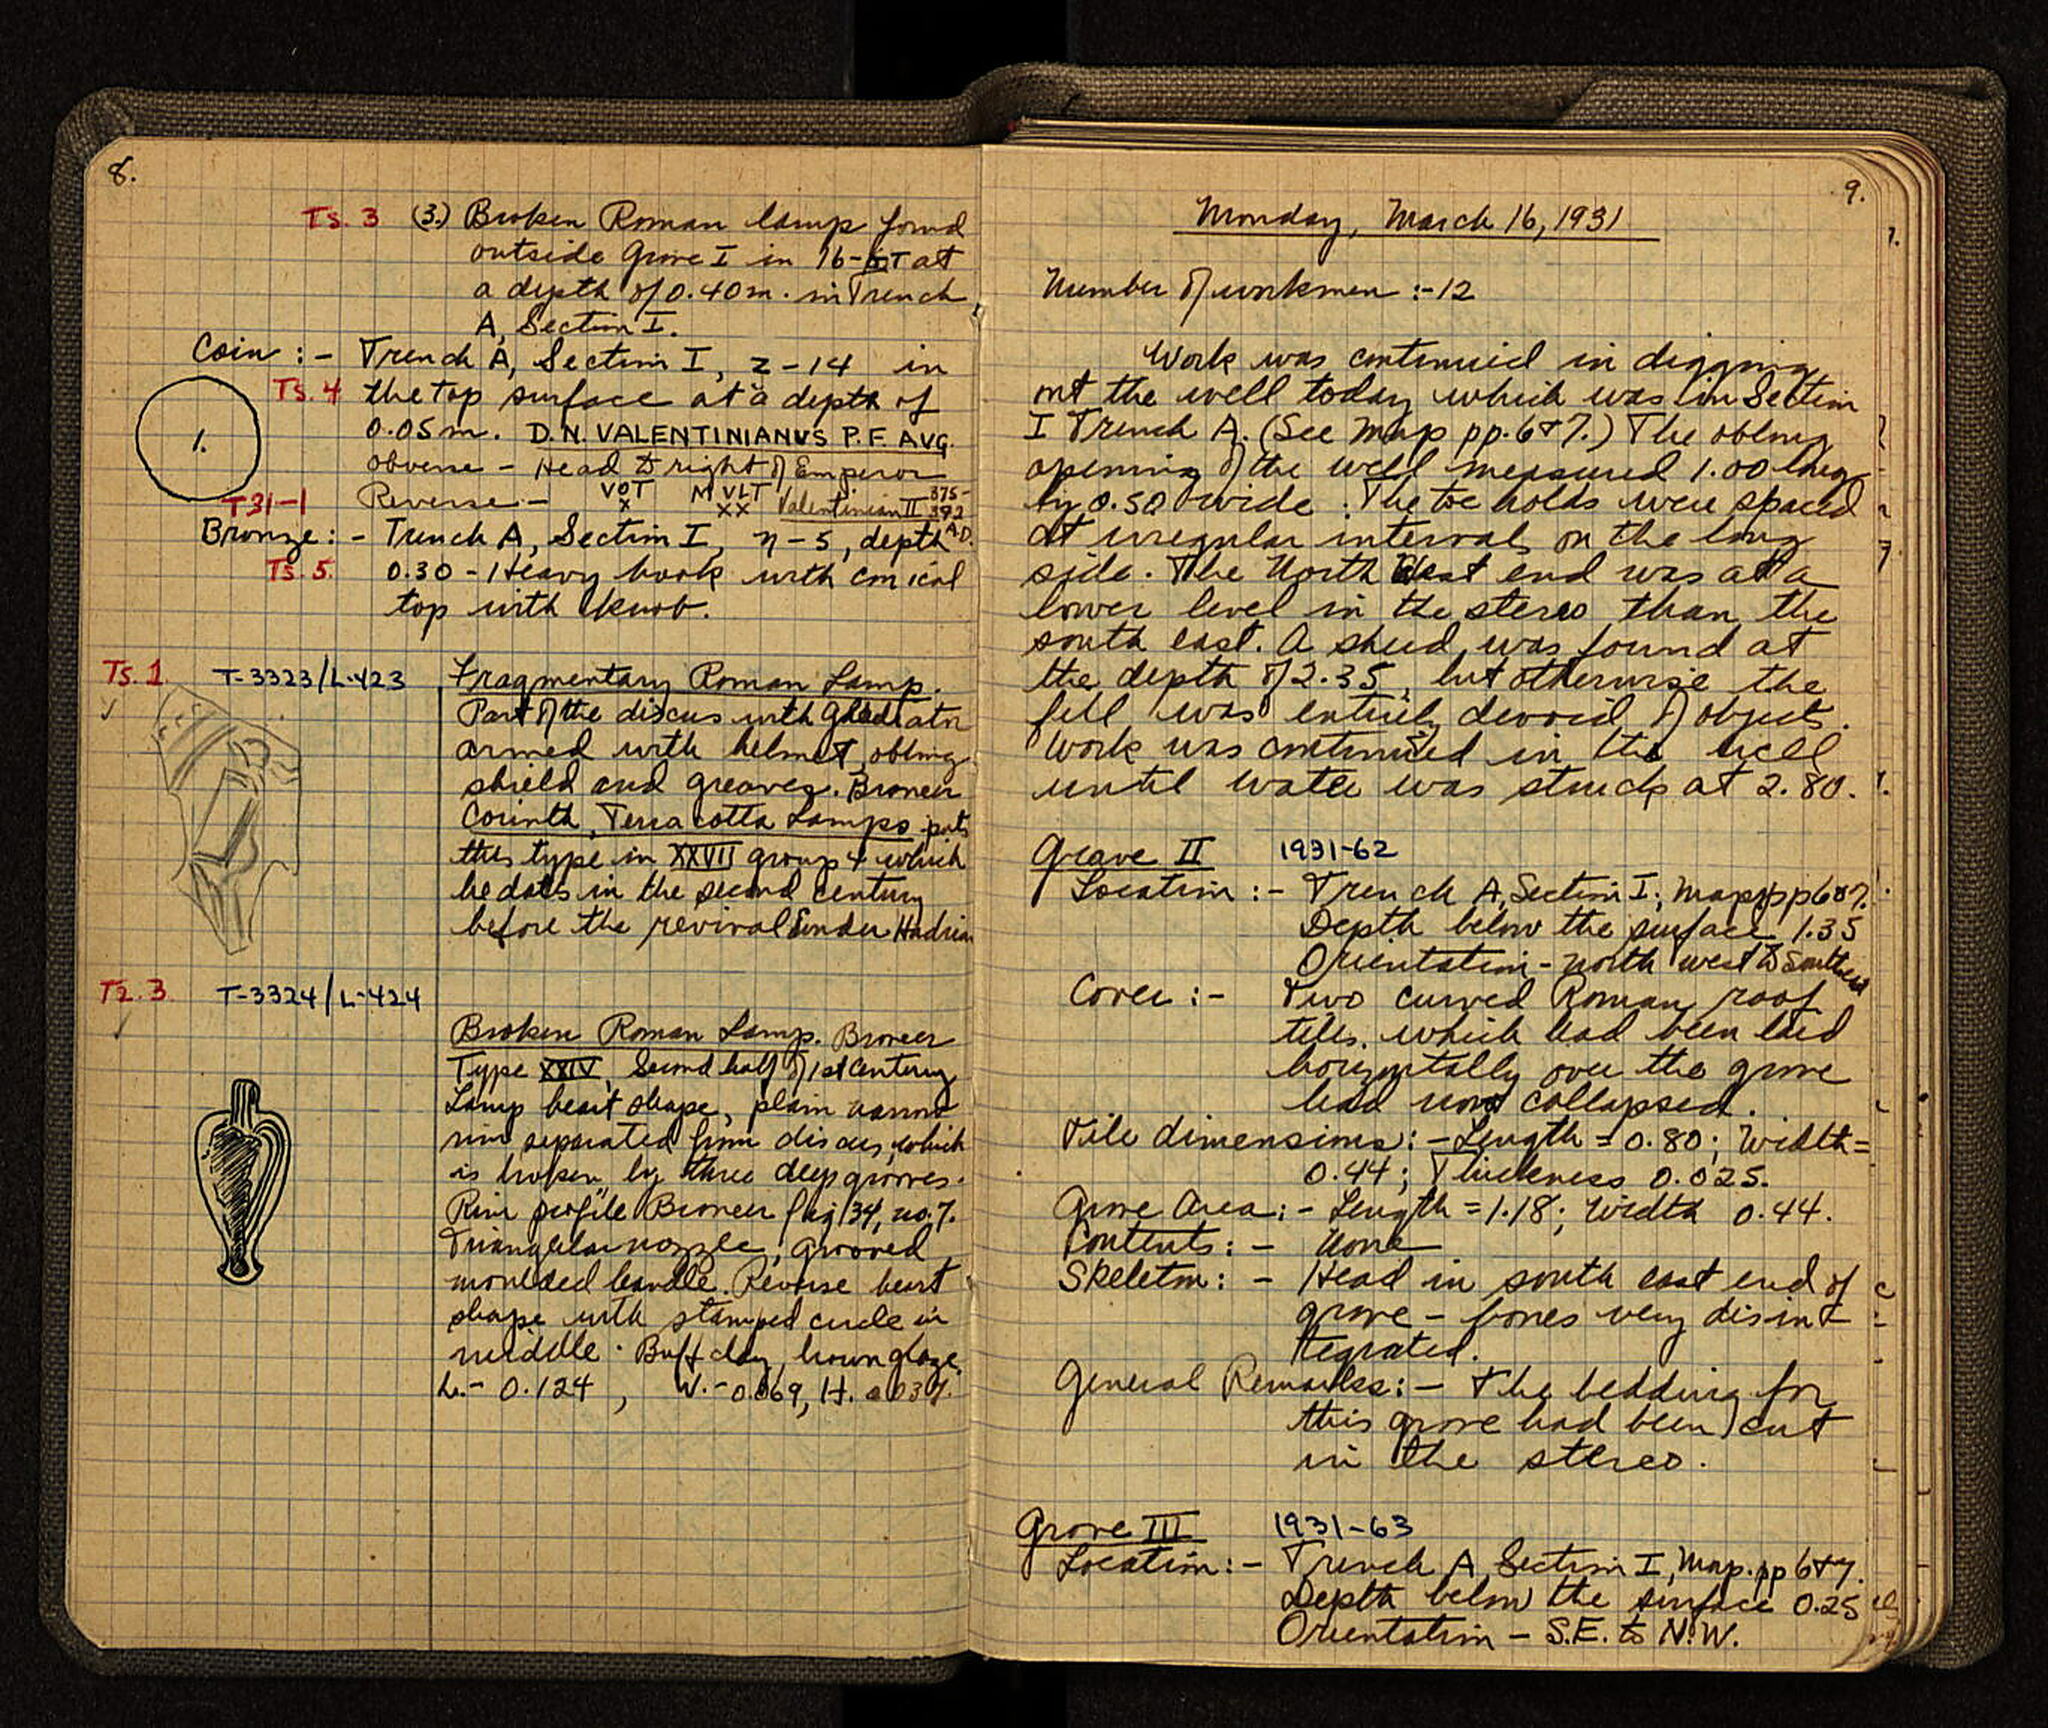 8.
Ts. 3 (3.) Broken Roman lamp found
outside Grave I in 16- T at
a depth of 0.40m. in Trench
A, Section I.
Coin :- Trench A, Section I, z-14 in
Ts. 4 the top surface at a depth of
1. 0.05m. D.N. VALENTINIANUS P.F. AVG.
obverse - Head to right of Emperor
T31-1 Reverse - VOT X MVLT XX Valentinian II 375-392 A.D.
Bronze: - Trench A, Section I, η-5, depth
Ts. 5. 0.30 - Heavy hook with conical
top with knob.
Ts. 1 T-3323/L-423 Fragmentary Roman Lamp.
Part of the discus with gladiator
armed with helmet, oblong
shield and greaves. Broneer
Corinth, Terra cotta Lamps puts
this type in XXVII group 4 which
he dates in the second century
before the revival under Hadrian
T2. 3 T-3324/L-424
Broken Roman Lamp. Broneer
Type XXIV, Second half of 1st century
Lamp heart shape, plain narrow
rim separated from discus, which
is broken, by three deep grooves.
Rim profile Broneer fig 34, no. 7.
Triangular nozzle, grooved
moulded handle. Reverse heart
shape with stamped circle in
middle. Buff clay, brown glaze.
L.- 0.124, W.- 0.069, H. 0.037.
9.
Monday, March 16, 1931
Number of workmen :- 12
Work was continued in digging
out the well today which was in Section
I Trench A. (See Map pp. 6+7.) The oblong
opening of the well measured 1.00 long
by 0.50 wide. The toe holds were spaced
at irregular intervals on the long
side. The North West end was at a
lower level in the stereo than the
south east. A sherd was found at
the depth of 2.35, but otherwise the
fill was entirely devoid of objects.
Work was continued in the well
until water was struck at 2.80.
Grave II 1931-62
Location :- Trench A, Section I; Map pp 6+7.
Depth below the surface 1.35
Orientation - north west to South east
Cover :- Two curved Roman roof
tiles, which had been laid
horizontally over the grave
had now collapsed.
Tile dimensions: - Length = 0.80; Width =
0.44; Thickness 0.025.
Grave Area: - Length = 1.18; Width 0.44.
Contents: - None
Skeleton: - Head in south east end of
grave - bones very disin-
tegrated.
General Remarks: - The bedding for
this grave had been cut
in the stereo.
Grave III 1931-63
Location: - Trench A, Section I, Map. pp 6+7.
Depth below the surface 0.25
Orientation - S.E. to N.W.